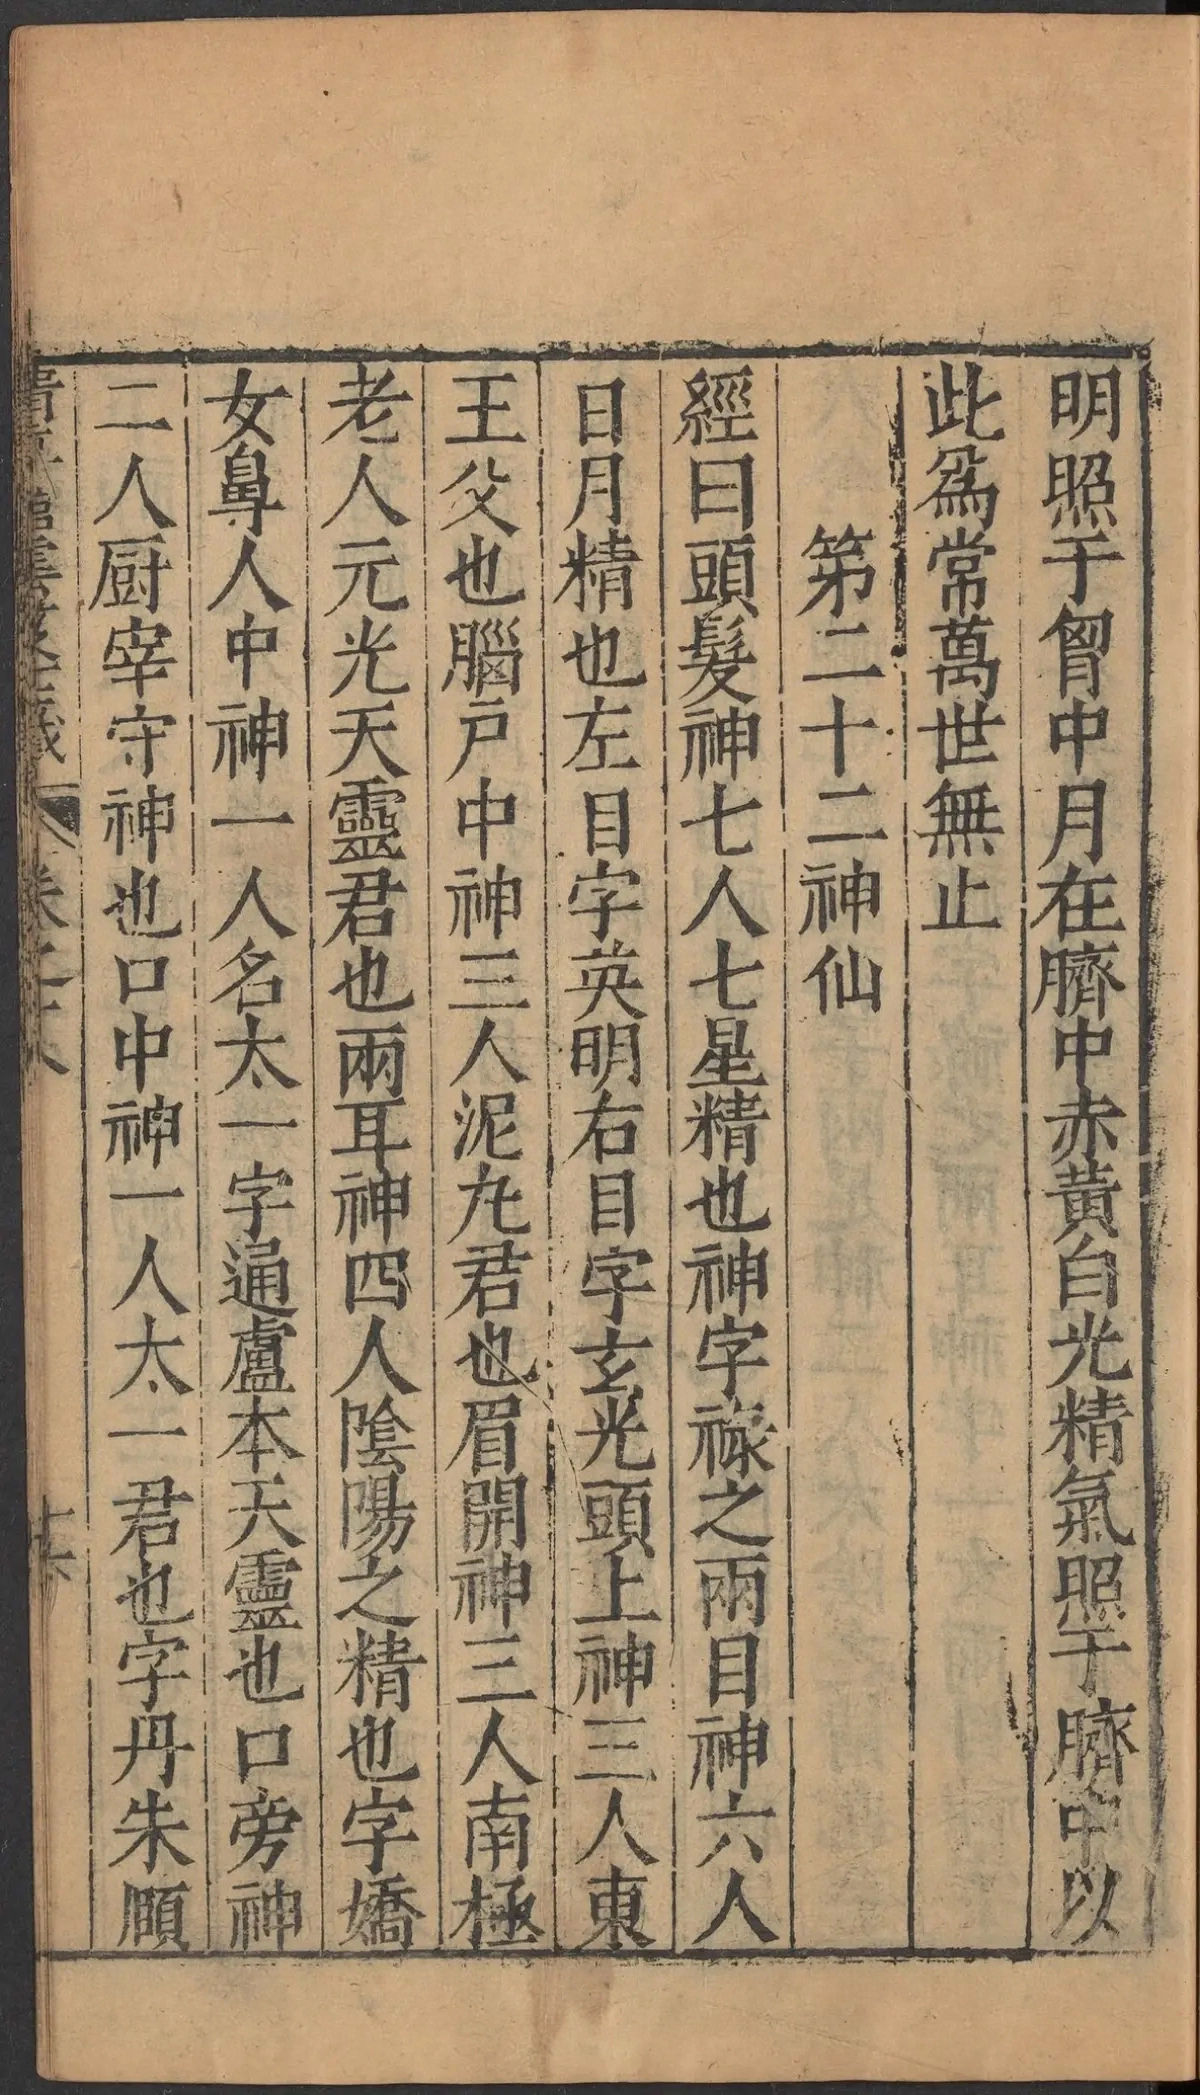 明照于胷中月在臍中赤黃白光精氣照于臍中以
此爲常萬世無止
第二十二神仙
經曰頭髮神七人七星精也神字祿之兩目神六人
日月精也左目字英明右目字玄光頭上神三人東
王父也腦戶中神三人泥丸君也眉間神三人南極
老人元光天靈君也兩耳神四人陰陽之精也字嬌
女鼻人中神一人名太一字通盧本天靈也口旁神
二人厨宰守神也口中神一人太一君也字丹朱頤